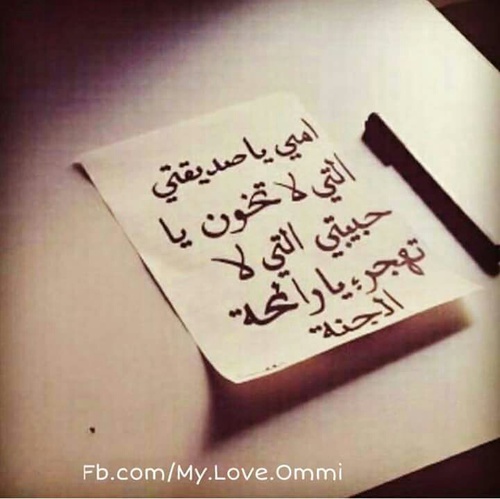 امي يا صديقتي
التي لا تخون يا
حبيبتي التي لا
تهجر، يا رائحة
الجنة
Fb.com/My.Love.Ommi